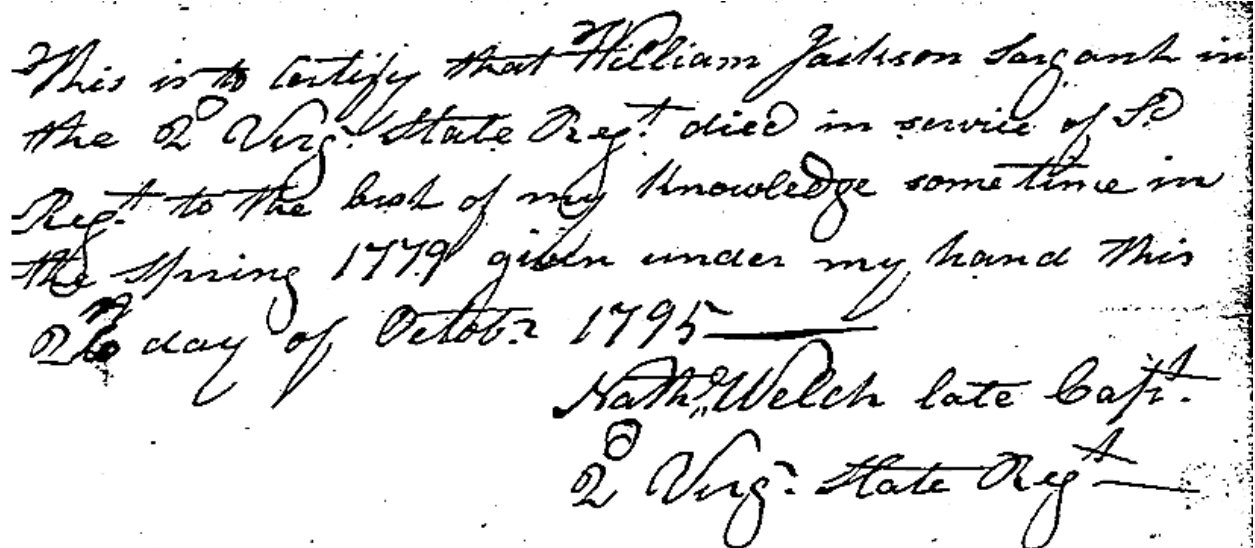 This is to Certify that William Jackson Sargant in
the 2d Virga. State Regt. died in service of Sd.
Regt. to the best of my Knowledge sometime in
the Spring 1779 given under my hand this
day of Octobr. 1795
Nathl. Welch late Capt.
2d Virga. State Regt